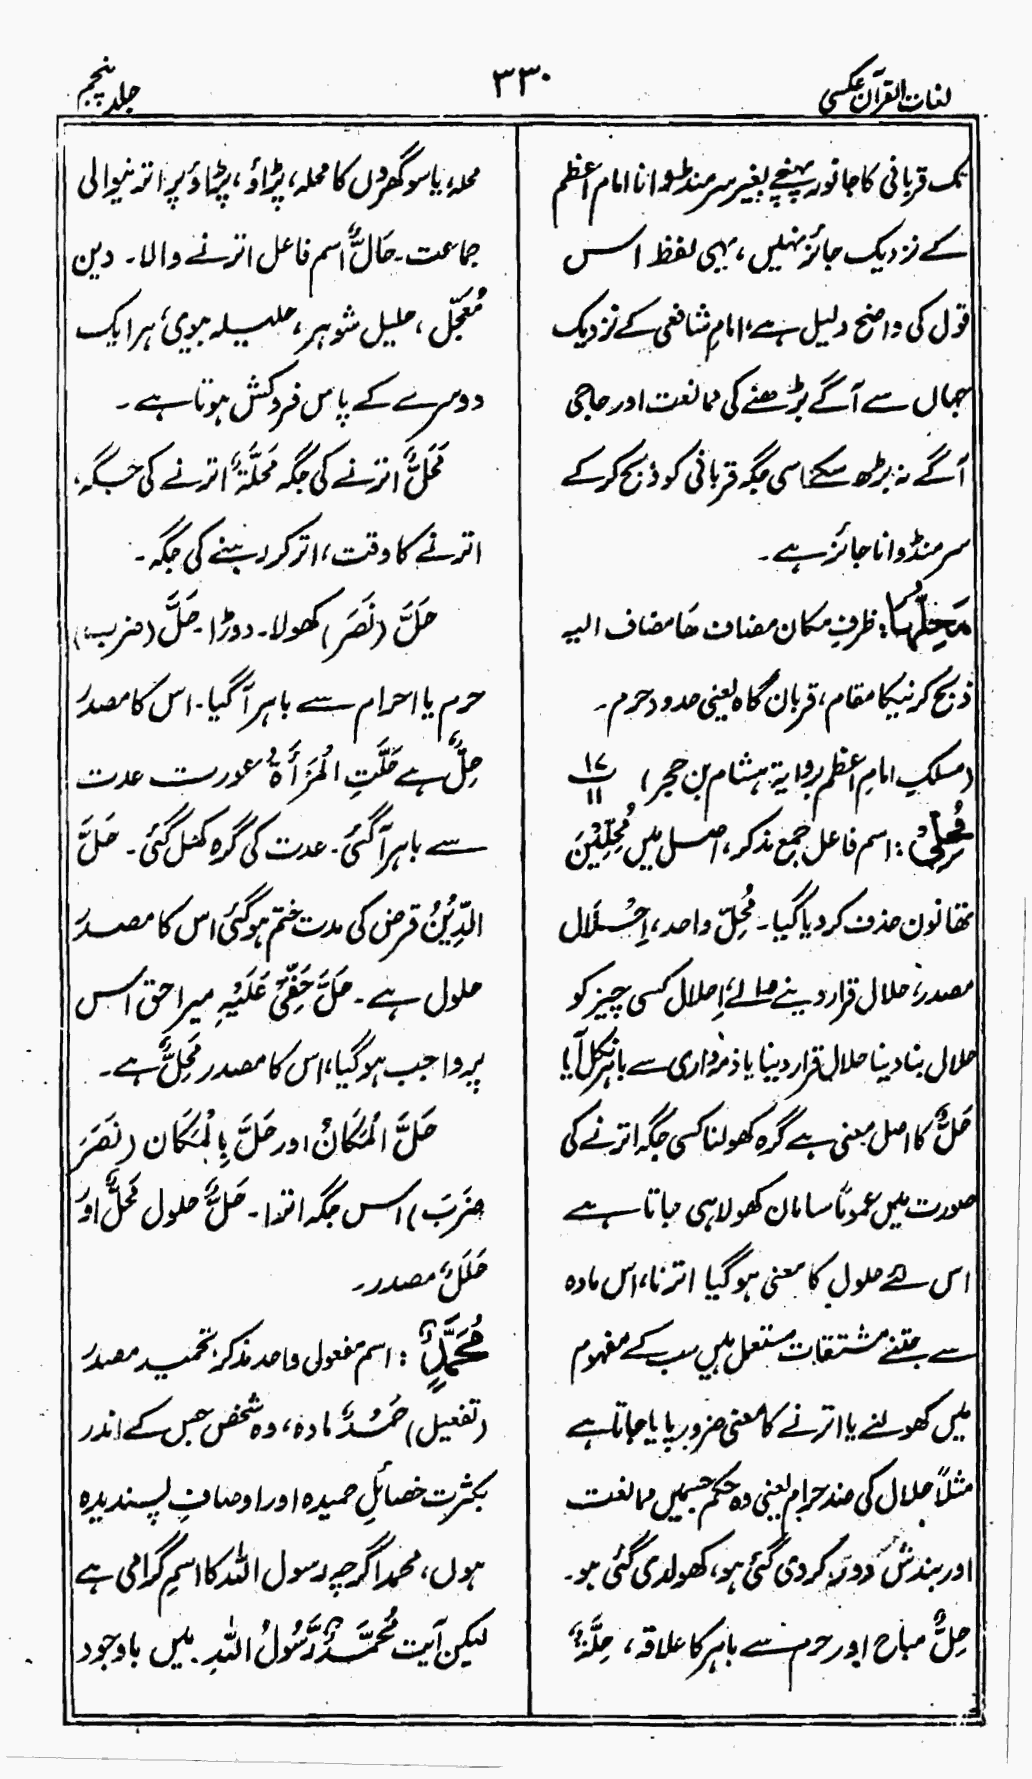 لغات القرآن عکسی
۳۳۰
جلد پنجم
تک قربانی کا جانور پہنچے بغیر سر منڈوانا امام اعظم
کے نزدیک جائز نہیں، یہی لفظ اس
قول کی واضح دلیل ہے، امام شافعی کے نزدیک
جہاں سے آگے بڑھنے کی ممانعت اور حاجی
آگے نہ بڑھ سکے اسی جگہ قربانی کو ذبح کر کے
سر منڈوانا جائز ہے۔
مَحِلُّهَا: ظرفِ مکان مضاف ھَا مضاف الیہ
ذبح کرنیکا مقام، قربان گاہ یعنی حدود حرم۔
(مسلکِ امامِ اعظم بروایۃ ہشام بن حجر) ۱۷/۱۱
مُحِلِّیْ: اسم فاعل جمع مذکر، اصل میں مُحِلِّیْنَ
تھا نون حذف کر دیا گیا۔ مُحِلّ واحد، اِحْلَال
مصدر، حلال قرار دینے والے، اِحلال کسی چیز کو
حلال بنا دینا حلال قرار دینا یا ذمہ واری سے باہر نکل آنا
حَلٌّ کا اصل معنی ہے گرہ کھولنا کسی جگہ اترنے کی
صورت میں عموماً سامان کھولا ہی جاتا ہے
اس لئے حلول کا معنی ہو گیا اترنا، اس مادہ
سے جتنے مشتقات مستعمل ہیں سب کے مفہوم
میں کھولنے یا اترنے کا معنی ضرور پایا جاتا ہے
مثلاً حلال کی ضد حرام یعنی وہ حکم جسمیں ممانعت
اور بندش دور کر دی گئی ہو، کھولدی گئی ہو۔
حِلٌّ مباح اور حرم سے باہر کا علاقہ، حِلَّۃٌ
محلہ، یا سو گھروں کا محلہ، پڑاؤ، پڑاؤ پر اترنیوالی
جماعت۔ حَالٌّ اسم فاعل اترنے والا۔ دین
مُعَجَّل، حلیل شوہر، حلیلہ بیوی، ہر ایک
دوسرے کے پاس فروکش ہوتا ہے۔
مَحَلٌّ اترنے کی جگہ مَحَلَّۃٌ اترنے کی جگہ،
اترنے کا وقت، اتر کر رہنے کی جگہ۔
حَلَّ (نَصَرَ) کھولا۔ دوڑا۔ حَلَّ (ضرب)
حرم یا احرام سے باہر آ گیا۔ اس کا مصدر
حِلٌّ ہے حَلَّتِ الْمَرْأَةُ عورت عدت
سے باہر آ گئی۔ عدت کی گرہ کھل گئی۔ حَلَّ
الدَّیْنُ قرض کی مدت ختم ہو گئی اس کا مصدر
حلول ہے۔ حَلَّ حَقِّیْ عَلَیْهِ میرا حق اس
پر واجب ہو گیا، اس کا مصدر مَحِلٌّ ہے۔
حَلَّ الْمَکَانَ اور حَلَّ بِالْمَکَان (نَصَرَ
ضَرَبَ) اس جگہ اترا۔ حَلٌّ حلول مَحَلٌّ اور
حَلَلٌ مصدر۔
مُحَمَّدٌ: اسم مفعول واحد مذکر، تحمید مصدر
(تفعیل) حَمْدٌ مادہ، وہ شخص جس کے اندر
بکثرت خصائلِ حمیدہ اور اوصافِ پسندیدہ
ہوں، محمد اگرچہ رسول اللہ کا اسمِ گرامی ہے
لیکن آیت مُحَمَّدٌ رَّسُوْلُ اللّٰهِ میں باوجود